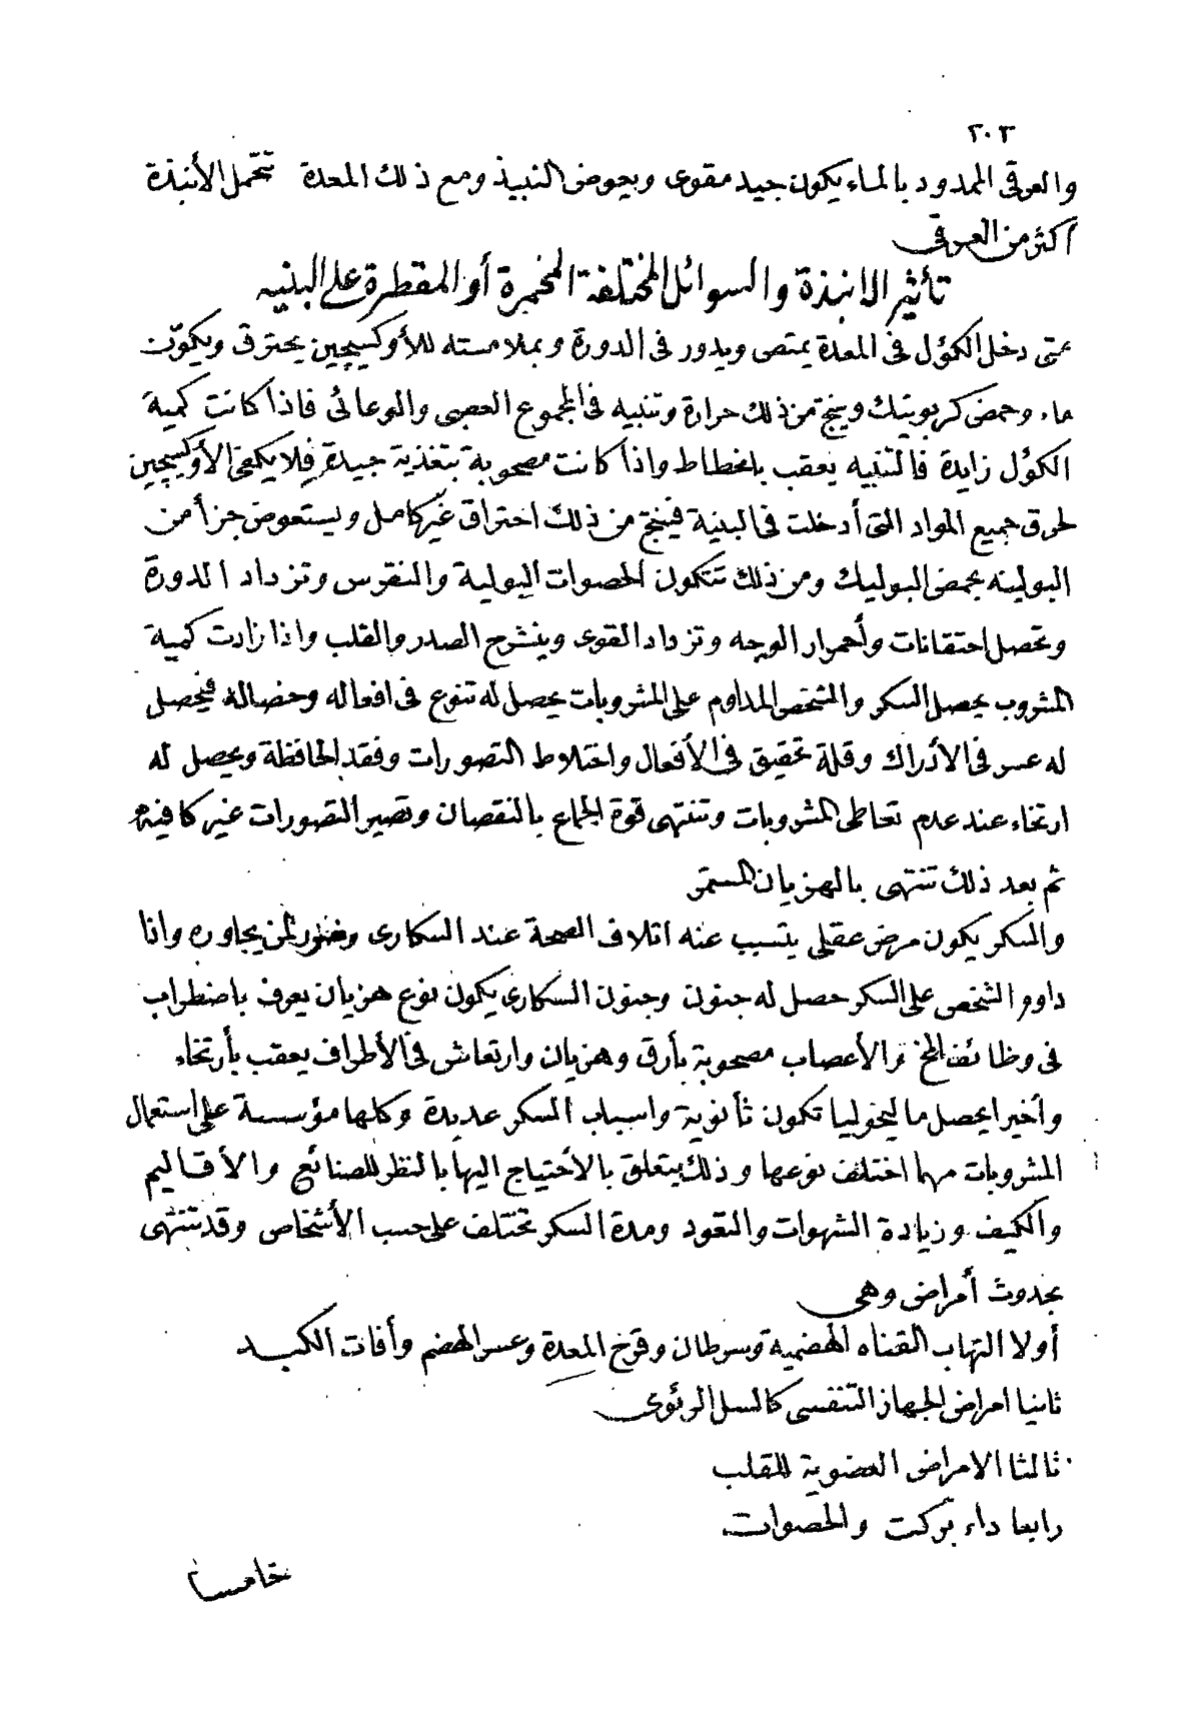 ٢٠٣
والعرقى الممدود بالماء يكون جيد مقوى ويعوض النبيذ ومع ذلك المعدة تتحمل الأنبذة
أكثر من العرقى
تأثير الانبذة والسوائل المختلفة المخمرة أو المقطرة على البنيه
متى دخل الكؤل فى المعدة يمتص ويدور فى الدورة وبملامسته للأوكسيجين يحترق ويكوّن
ماء وحمض كربونيك وينتج من ذلك حرارة وتنبيه فى المجموع العصبى والوعائى فاذا كانت كمية
الكؤل زايدة فالتنبيه يعقب بانحطاط واذا كانت مصحوبة بتغذية جيدة فلا يكفى الأوكسيجين
لحرق جميع المواد التى أدخلت فى البنية فينتج من ذلك احتراق غير كامل ويستعوض جزأ من
البولينه بحمض البوليك ومن ذلك تتكون الحصوات البولية والنقرس وتزداد الدورة
وتحصل احتقانات وأحمرار الوجه وتزداد القوى وينشرح الصدر والقلب واذا زادت كمية
المشروب يحصل السكر والشخص المداوم على المشروبات يحصل له تنوع فى افعاله وخصاله فيحصل
له عسر فى الأدراك وقلة تحقيق فى الأفعال واختلاط التصورات وفقد الحافظة ويحصل له
ارتخاء عند عدم تعاطى المشروبات وتنتهى قوة الجماع بالنقصان وتصير التصورات غير كافيه
ثم بعد ذلك تنتهى بالهزيان المستمر
والسكر يكون مرض عقلى يتسبب عنه اتلاف الصحة عند السكارى وضرر لمن يجاوره واذا
داوم الشخص على السكر حصل له جنون وجنون السكارى يكون نوع هزيان يعرف باضطراب
فى وظائف المخ والأعصاب مصحوبة بأرق وهزيان وارتعاش فى الأطراف يعقب بأرتخاء
وأخيرا يحصل ماليخوليا تكون ثأنوية واسباب السكر عديدة وكلها مؤسسة على استعمال
المشروبات مهما اختلف نوعها وذلك يتعلق بالأحتياج اليها بالنظر للصنائع والأقاليم
والكيف وزيادة الشهوات والتعود ومدة السكر تختلف على حسب الأشخاص وقد تنتهى
بحدوث أمراض وهى
أولا التهاب القناه الهضمية وسرطان وقروح المعدة وعسر الهضم وأفات الكبد
ثانيا امراض الجهاز التنفسى كالسل الرئوى
ثالثا الامراض العضوية للقلب
رابعا داء بركت والحصوات
خامسا